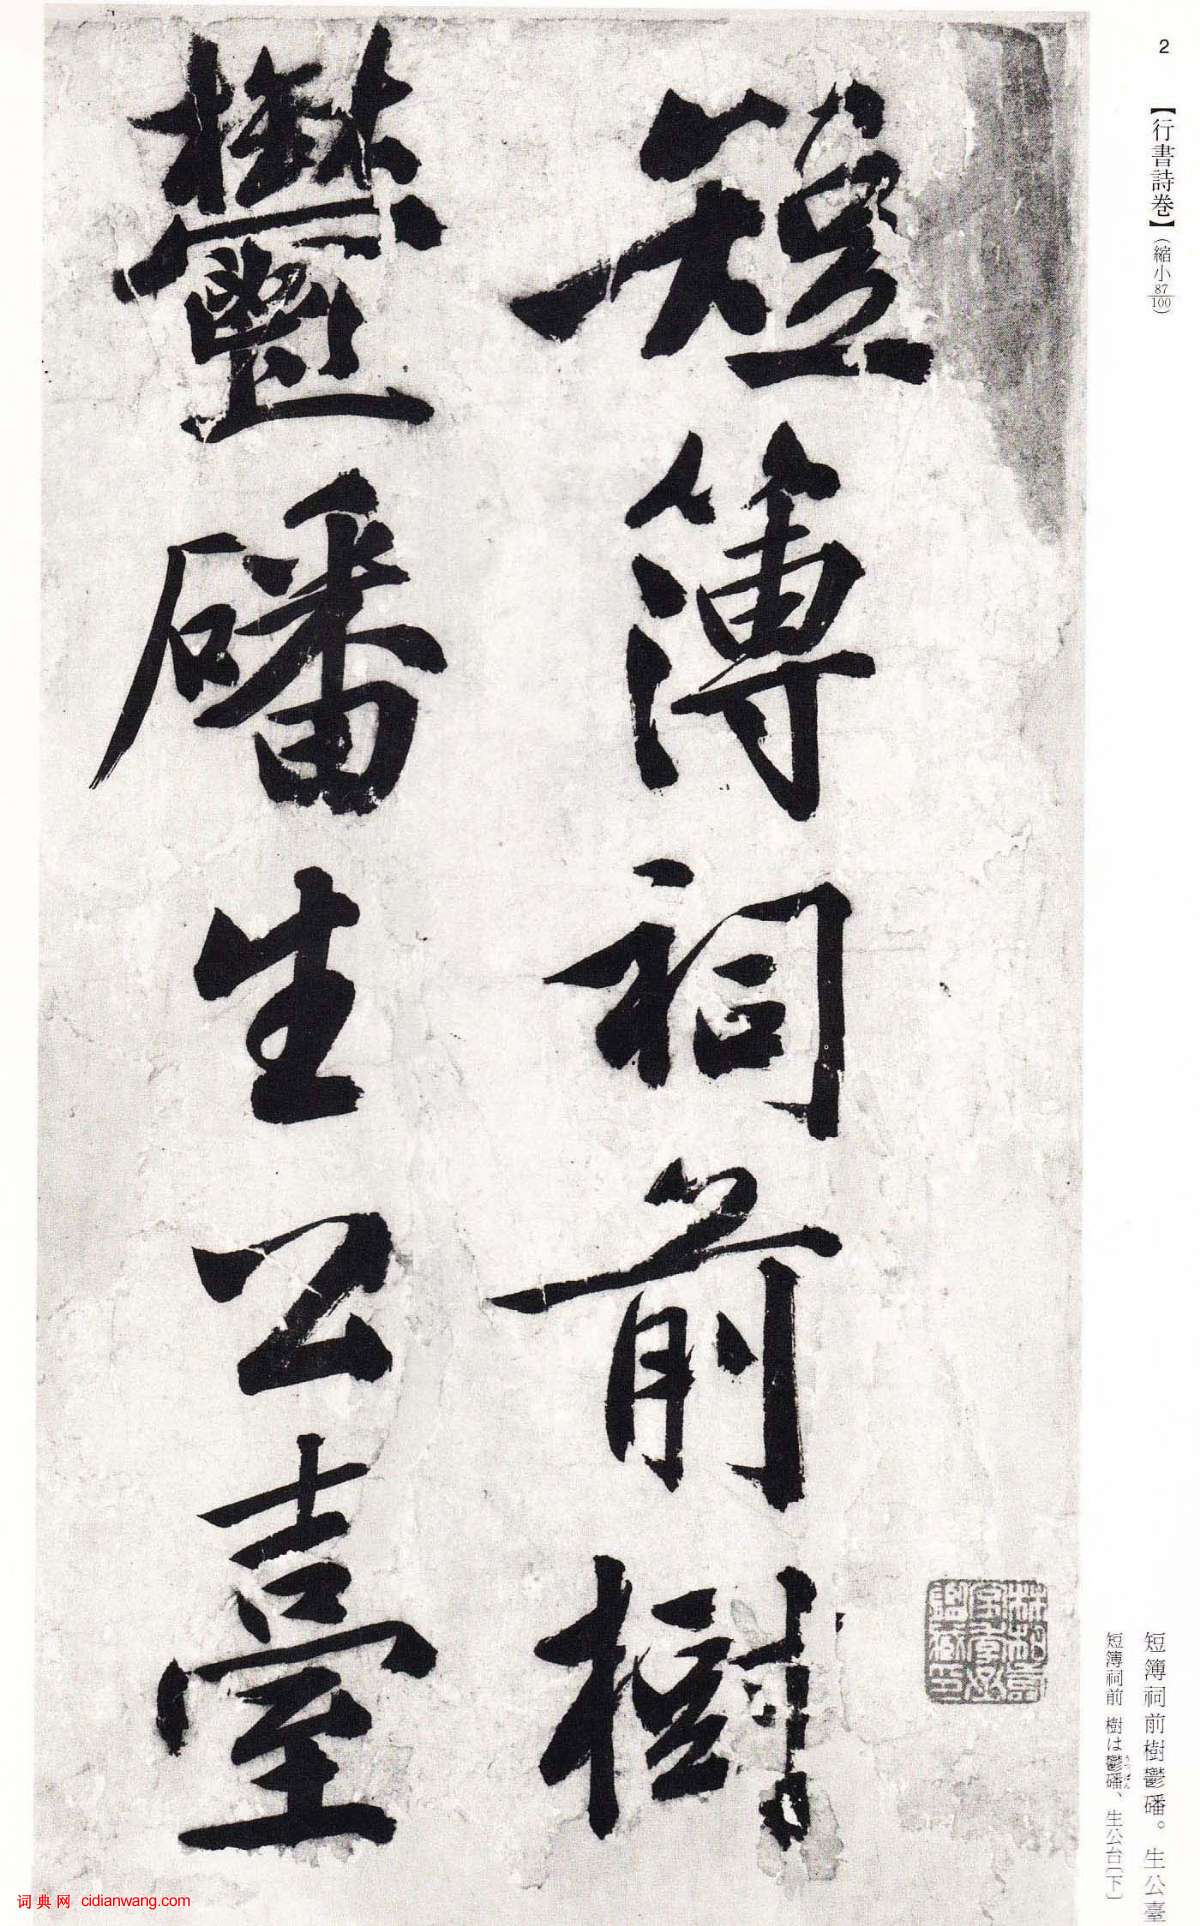 2
【行書詩卷】（縮小87/100）
短簿祠前樹
鬱磻生公臺
短簿祠前樹鬱磻。生公臺
短簿祠前 樹は鬱磻、生公台〔下〕
うつばん
词典网 cidianwang.com